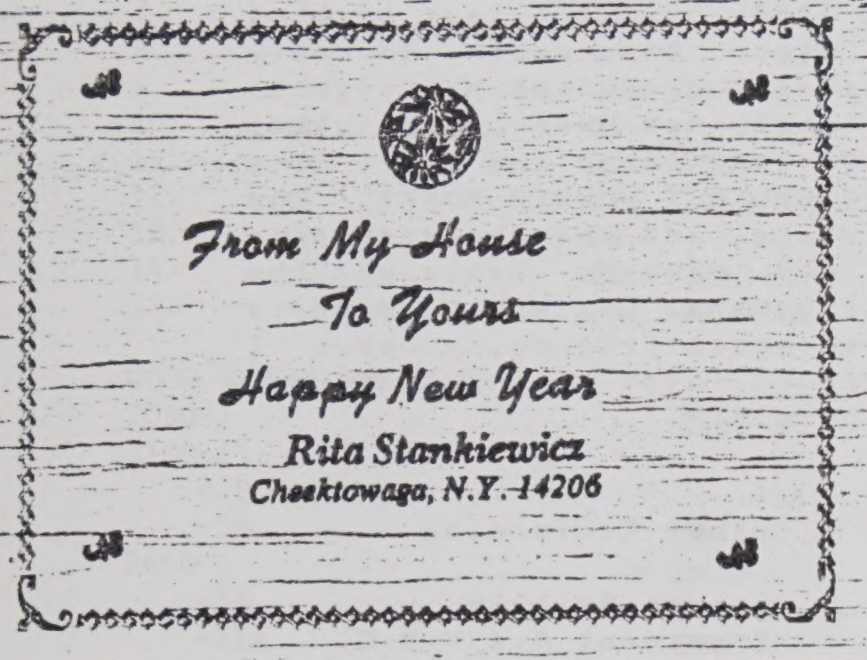 From My House
To Yours
Happy New Year
Rita Stankiewicz
Cheektowaga, N.Y. 14206